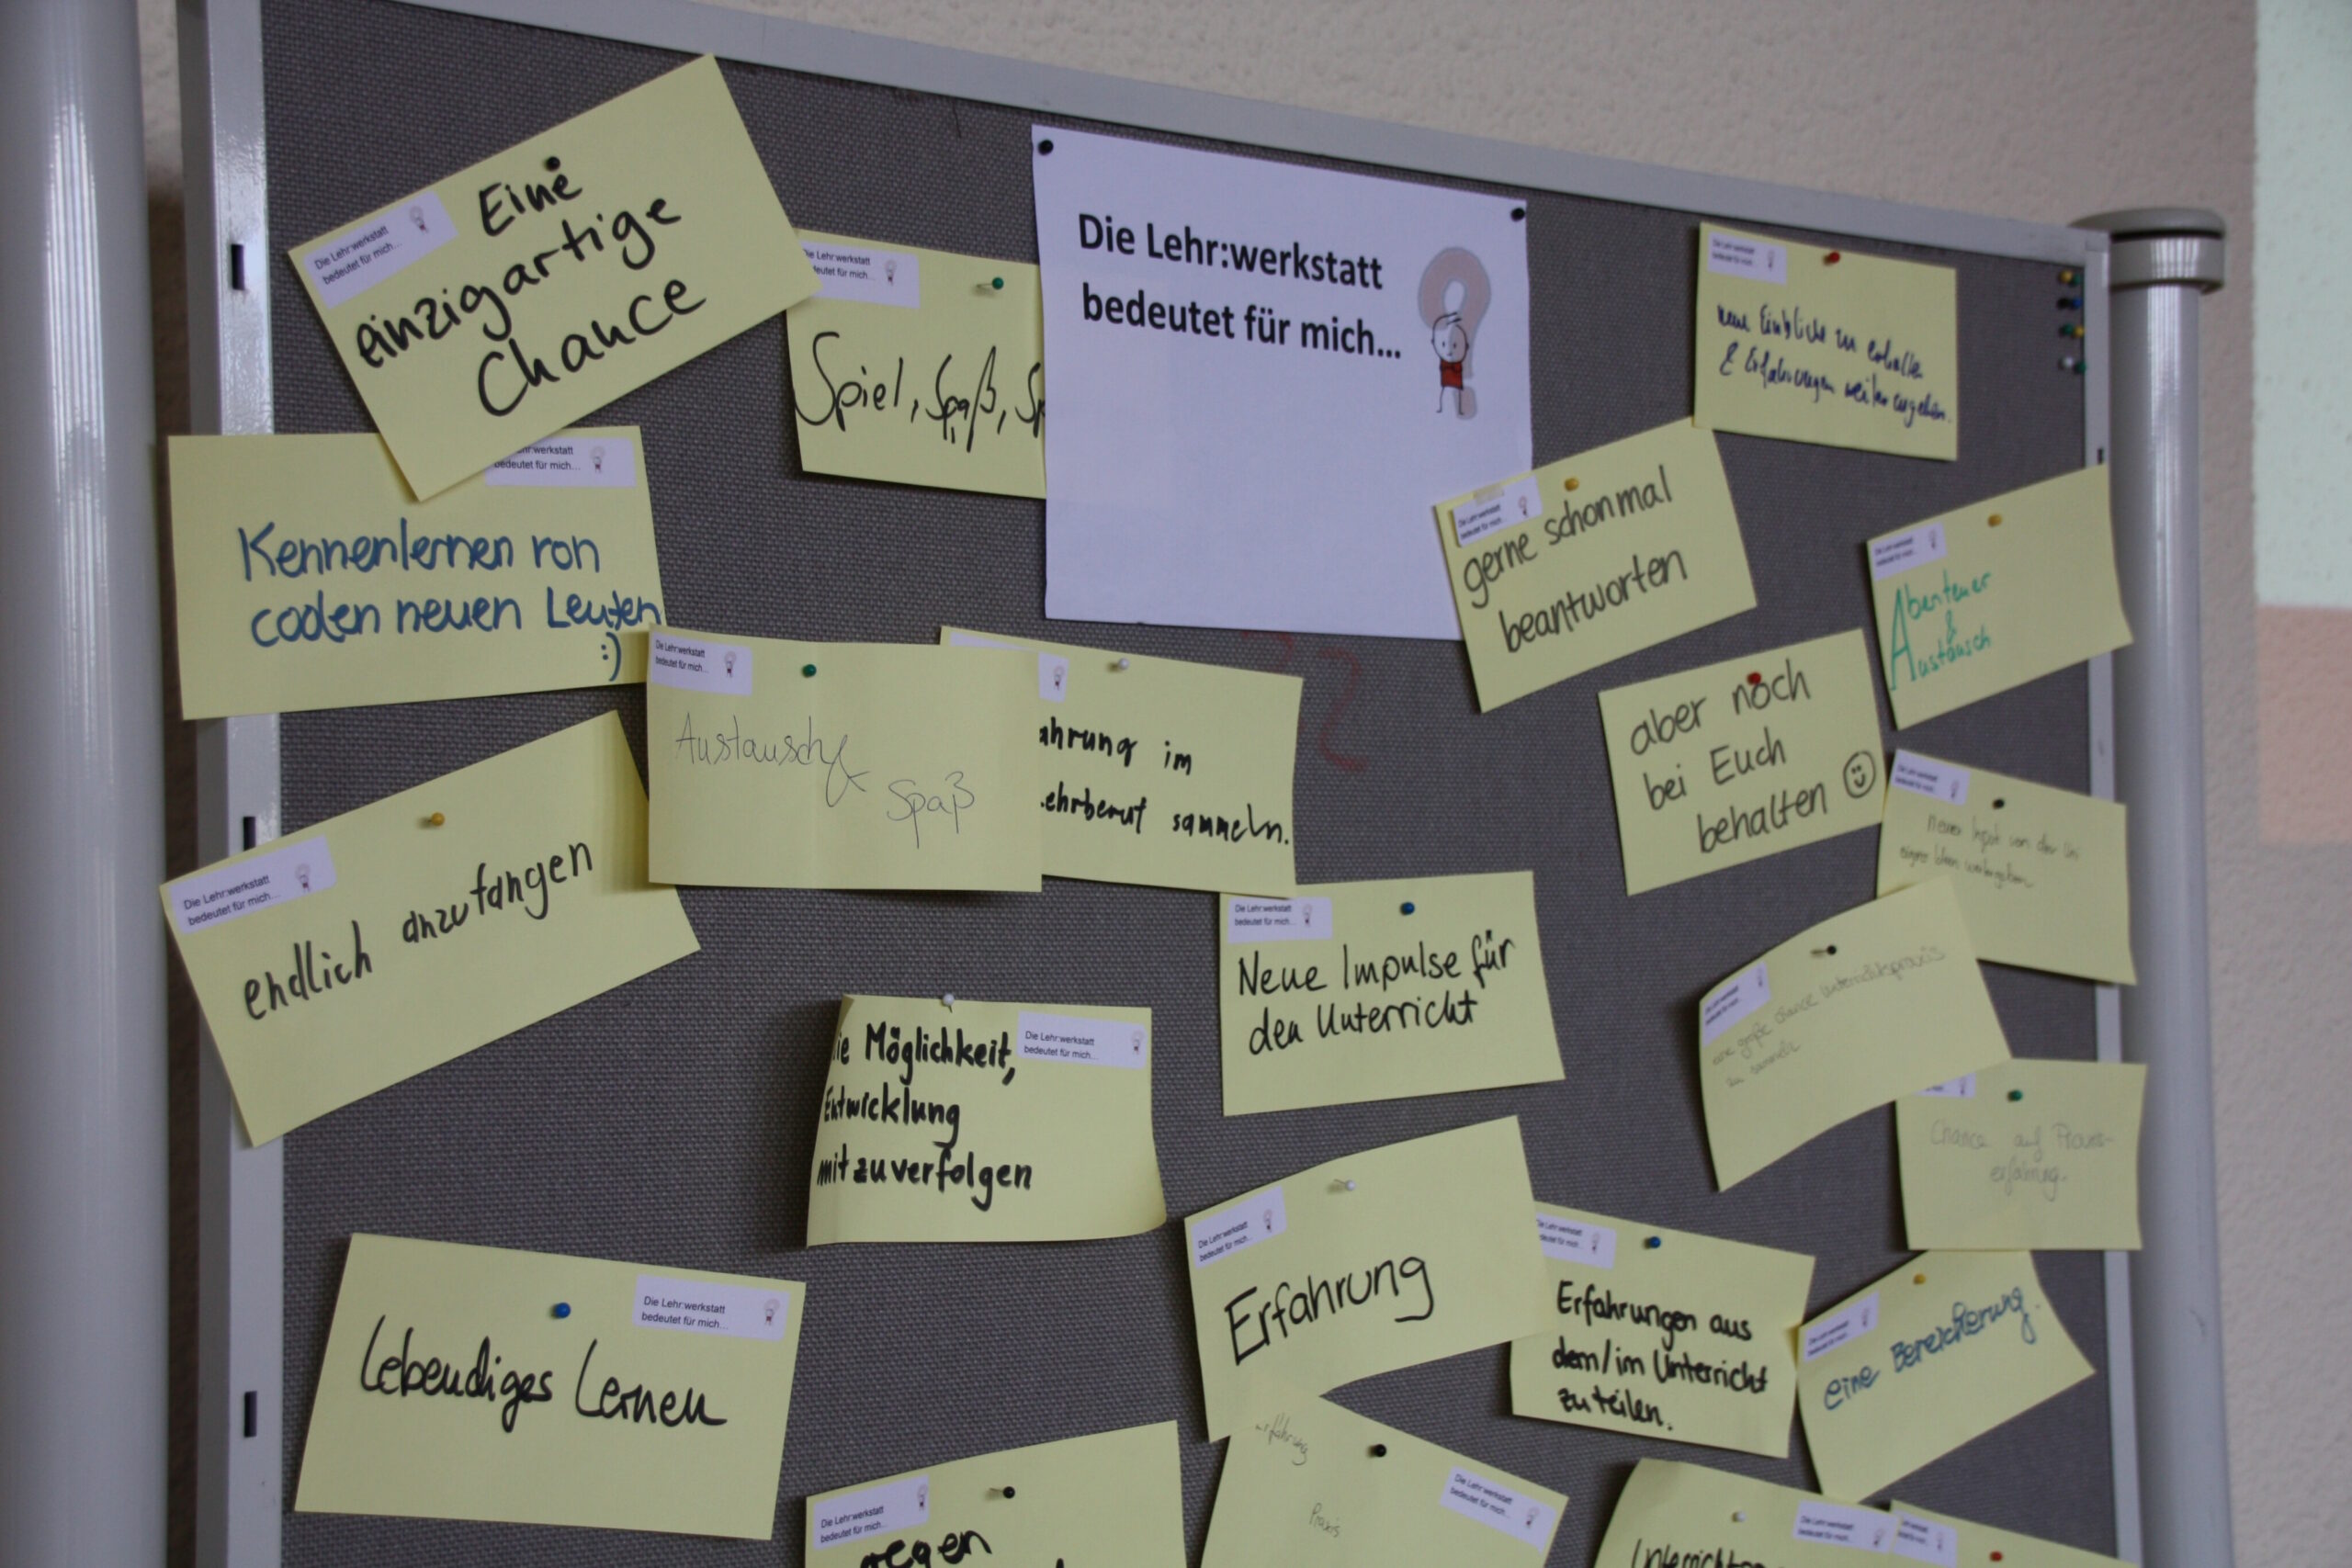 Die Lehr:werkstatt
bedeutet für mich...
Die Lehr:werkstatt
bedeutet für mich...
Eine
einzigartige
Chance
Die Lehr:werkstatt
bedeutet für mich...
Spiel, Spaß,
Lehr:werkstatt
bedeutet für mich...
Kennenlernen von
coolen neuen Leuten
:)
Die Lehr:werkstatt
bedeutet für mich...
neue Einblicke zu erhalten
& Erfahrungen weiterzugeben.
Die Lehr:werkstatt
bedeutet für mich...
gerne schonmal
beantworten
Die Lehr:werkstatt
bedeutet für mich...
Abenteuer
&
Austausch
aber noch
bei Euch
behalten
Die Lehr:werkstatt
bedeutet für mich...
Austausch &
Spaß
ahrung im
ehrberuf sammeln.
Die Lehr:werkstatt
bedeutet für mich...
endlich anzufangen
Die Lehr:werkstatt
bedeutet für mich...
Neuen Input von der Uni
Die Lehr:werkstatt
bedeutet für mich...
Neue Impulse für
den Unterricht
Die Lehr:werkstatt
bedeutet für mich...
eine große Chance Unterrichtspraxis
zu sammeln
Die Lehr:werkstatt
bedeutet für mich...
ie Möglichkeit,
Entwicklung
mitzuverfolgen
Chance auf Praxis-
erfahrung.
Die Lehr:werkstatt
bedeutet für mich...
Erfahrung
Die Lehr:werkstatt
bedeutet für mich...
Erfahrungen aus
dem/im Unterricht
zu teilen.
Die Lehr:werkstatt
bedeutet für mich...
eine Bereicherung.
Die Lehr:werkstatt
bedeutet für mich...
Lebendiges Lernen
Die Lehr:werkstatt
bedeutet für mich...
gegen
Erfahrung
Die Lehr:werkstatt
bedeutet für mich...
Praxis
Die Lehr:werkstatt
bedeutet für mich...